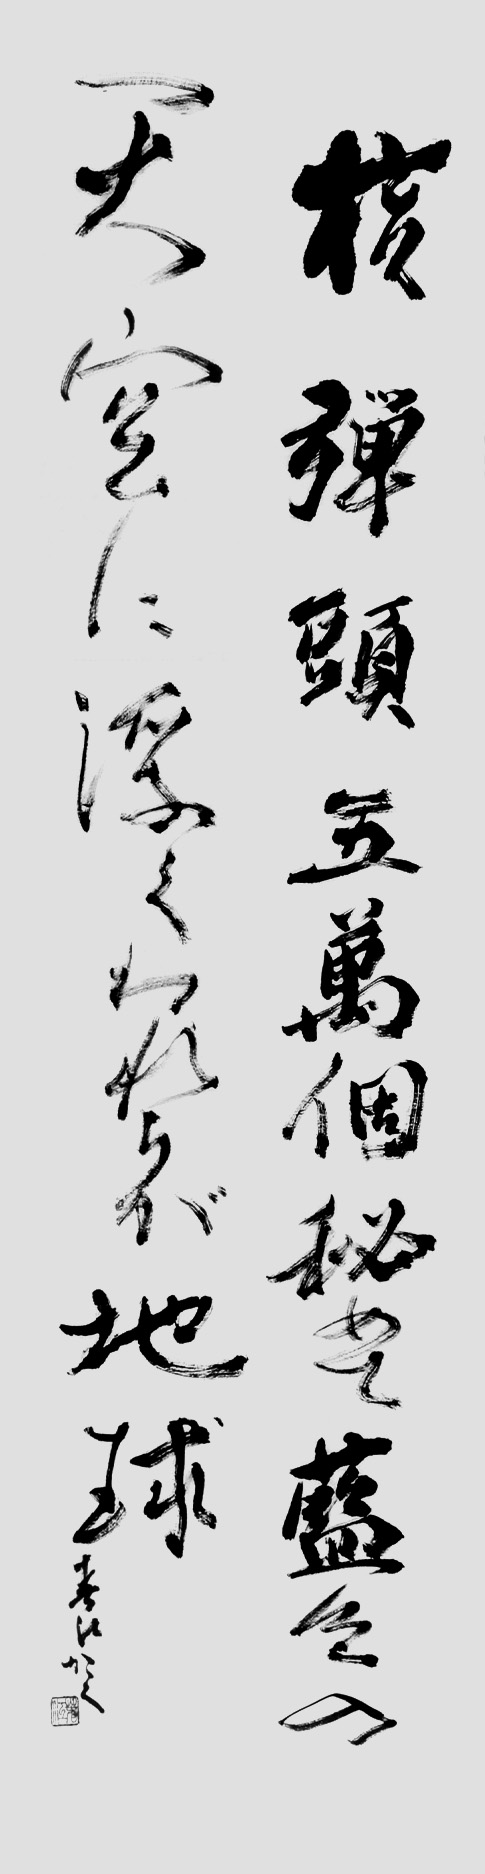 核弾頭五萬個秘めて藍色の
天空に浮くわれらが地球